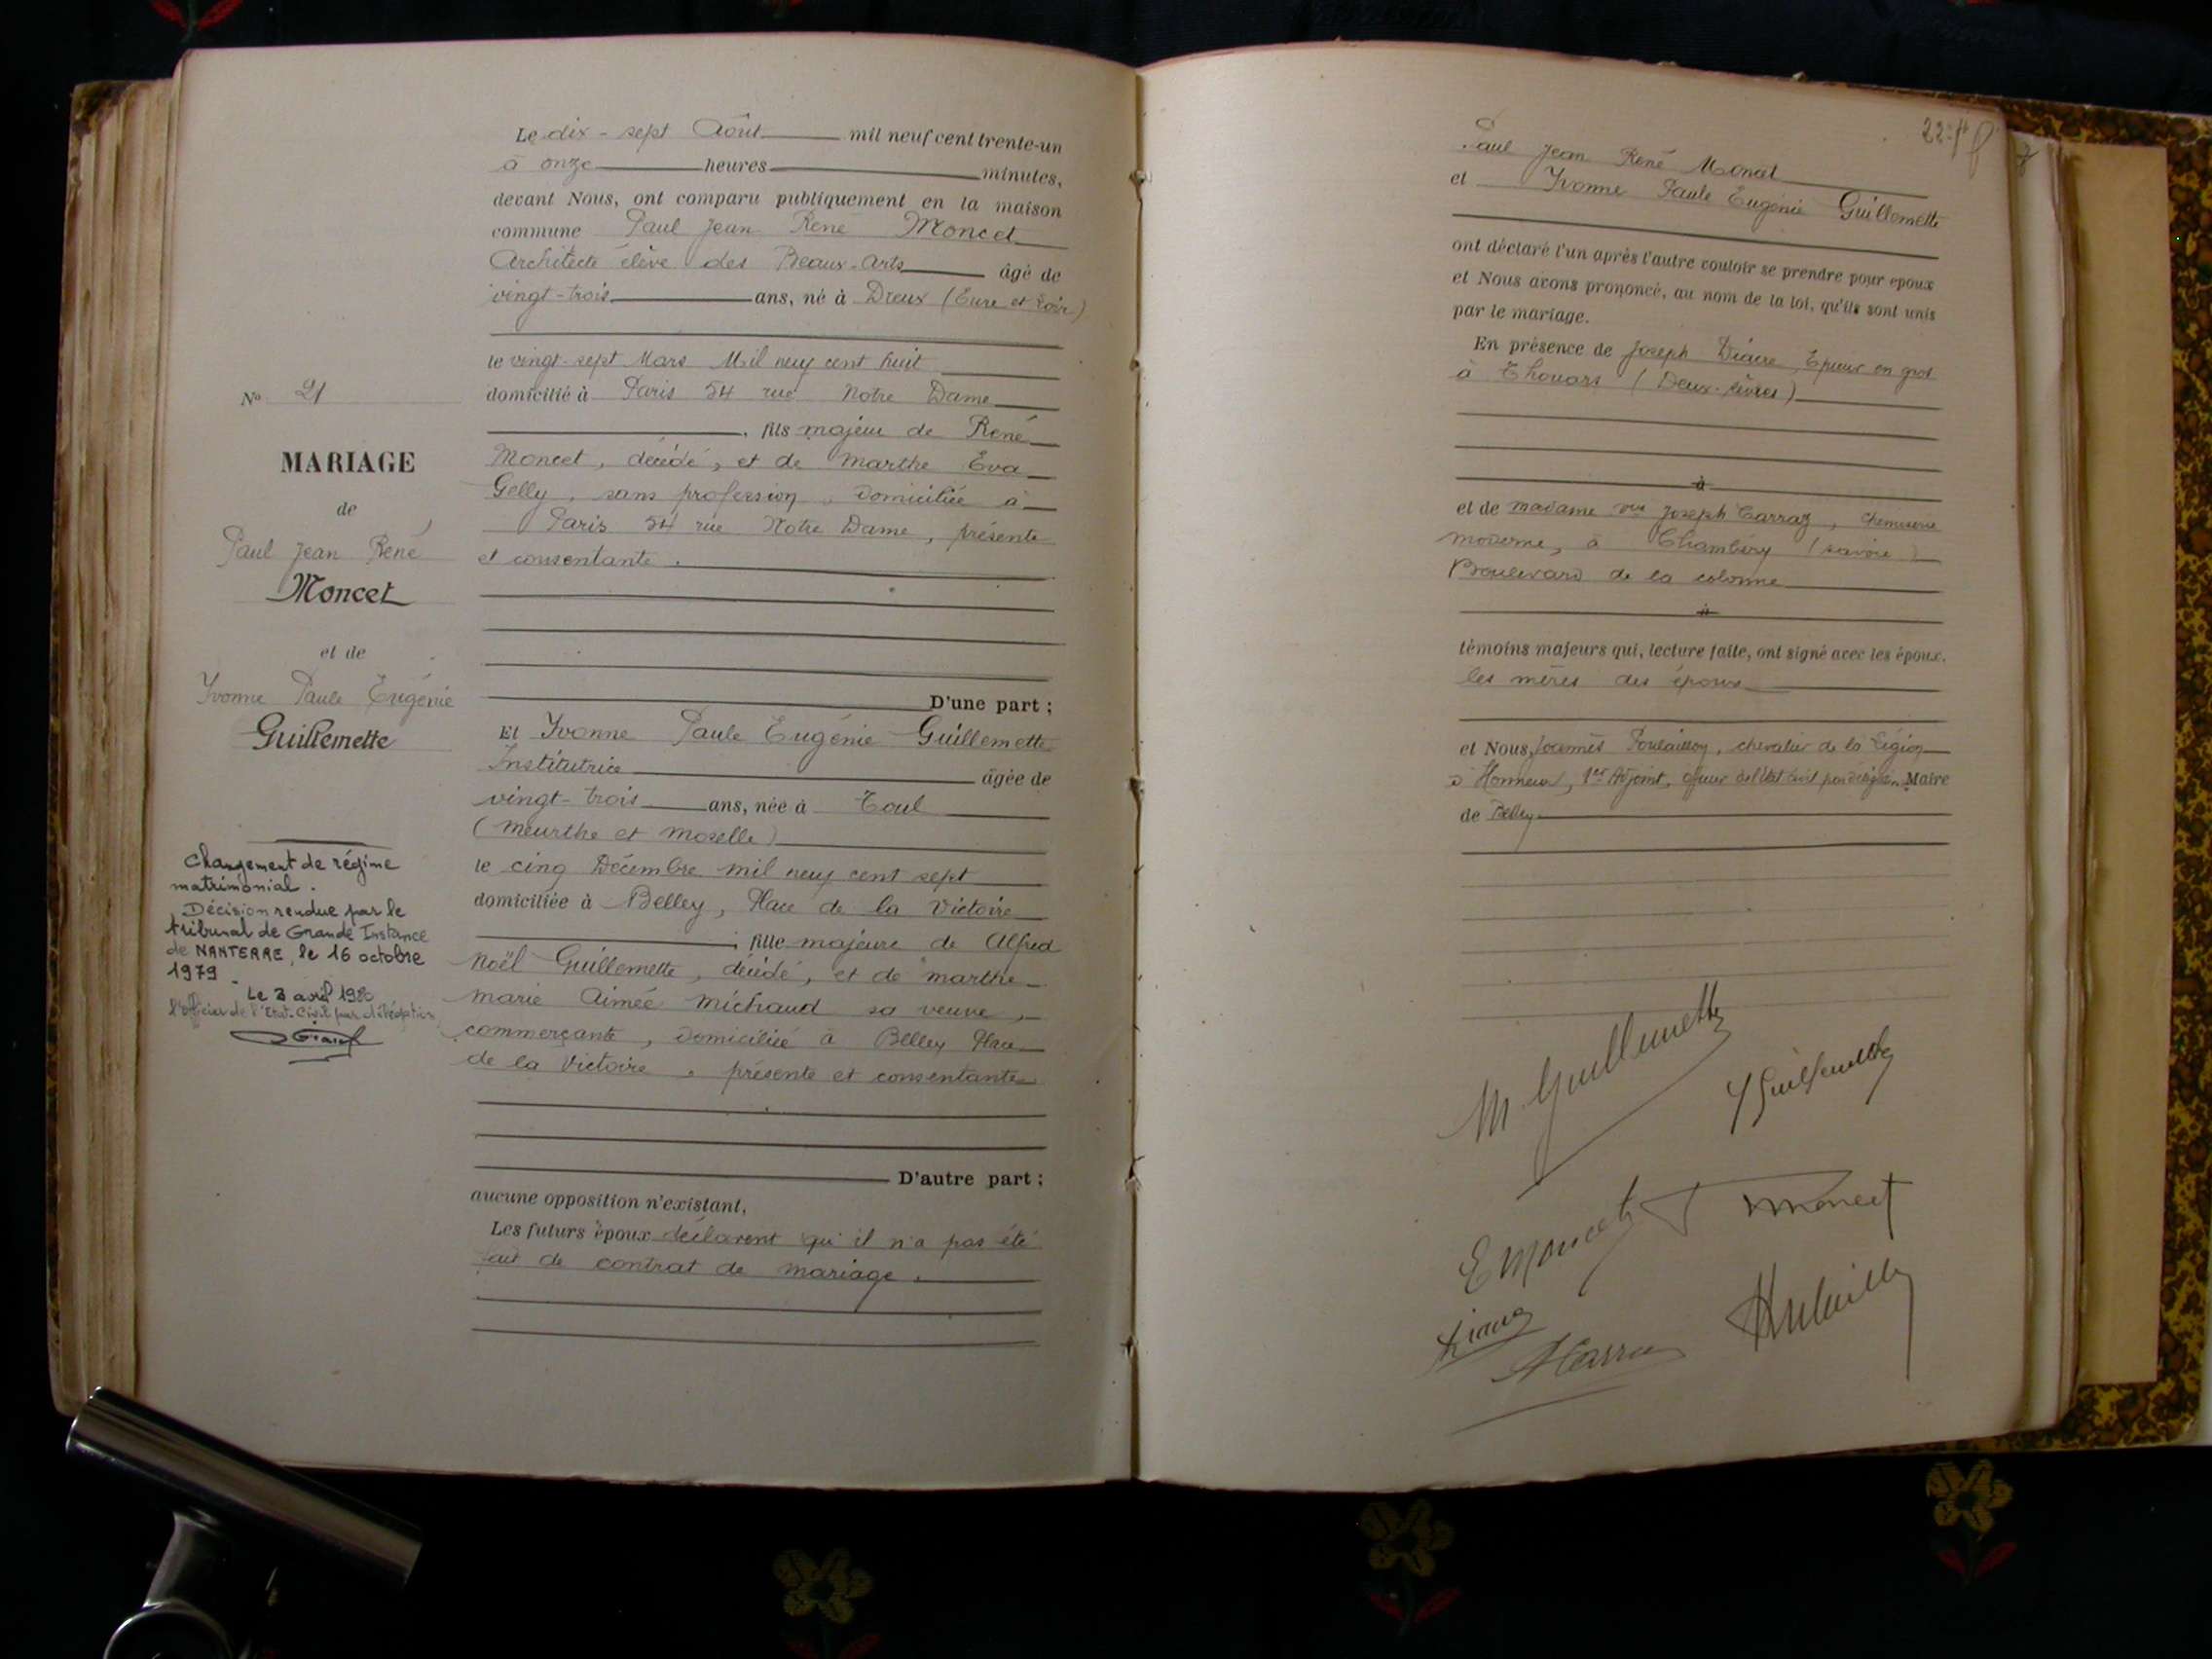 Le dix-sept Août mil neuf cent trente-un
à onze heures minutes,
devant Nous, ont comparu publiquement en la maison
commune Paul Jean René Moncet
Architecte élève des Beaux-Arts âgé de
vingt-trois ans, né à Dreux (Eure et Loir)
le vingt-sept Mars Mil neuf cent huit
domicilié à Paris 54 rue Notre Dame
, fils majeur de René
Moncet, décédé, et de Marthe Eva
Gelly, sans profession, domiciliée à
Paris 54 rue Notre Dame, présente
et consentante.
D'une part ;
Et Yvonne Paule Eugénie Guillemette
Institutrice âgée de
vingt-trois ans, née à Toul
(Meurthe et Moselle)
le cinq Décembre mil neuf cent sept
domiciliée à Belley, Place de la Victoire
; fille majeure de Alfred
Noël Guillemette, décédé, et de Marthe
Marie Aimée Michaud sa veuve,
commerçante, domiciliée à Belley Place
de la Victoire, présente et consentante
D'autre part ;
aucune opposition n'existant,
Les futurs époux déclarent qu'il n'a pas été
fait de contrat de mariage.
No 21
MARIAGE
de
Paul Jean René
Moncet
et de
Yvonne Paule Eugénie
Guillemette
Changement de régime
matrimonial.
Décision rendue par le
tribunal de Grande Instance
de NANTERRE, le 16 octobre
1979.
Le 3 avril
l'officier de l'Etat-Civil par délégation
Paul Jean René Moncet
et Yvonne Paule Eugénie Guillemette
ont déclaré l'un après l'autre vouloir se prendre pour époux
et Nous avons prononcé, au nom de la loi, qu'ils sont unis
par le mariage.
En présence de Joseph Diacre, Epicier en gros
à Thouars (Deux-Sèvres)
à
et de madame vve Joseph Carraz, chemiserie
moderne, à Chambéry (Savoie)
Boulevard de la colonne
à
témoins majeurs qui, lecture faite, ont signé avec les époux.
les mères des époux
et Nous, Poulaillon, chevalier de la Légion
d'Honneur, 1er Adjoint, officier de l'état civil par délégation Maire
de Belley
M Guillemette
Y Guillemette
E Moncet
Moncet